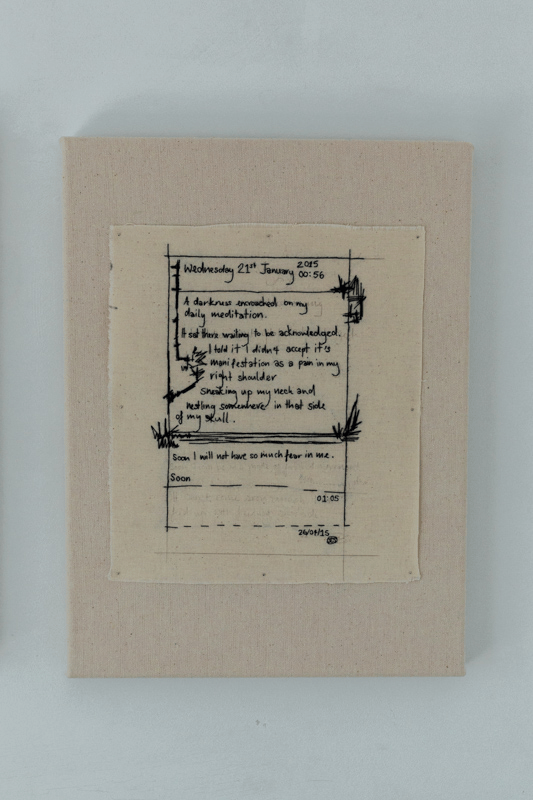 Wednesday 21st January 2015
00:56
A darkness encroached on my
daily meditation.
It sat there waiting to be acknowledged.
I told it I didn't accept it's
manifestation as a pain in my
right shoulder
sneaking up my neck and
nestling somewhere in that side
of my skull.
Soon I will not have so much fear in me.
Soon
01:05